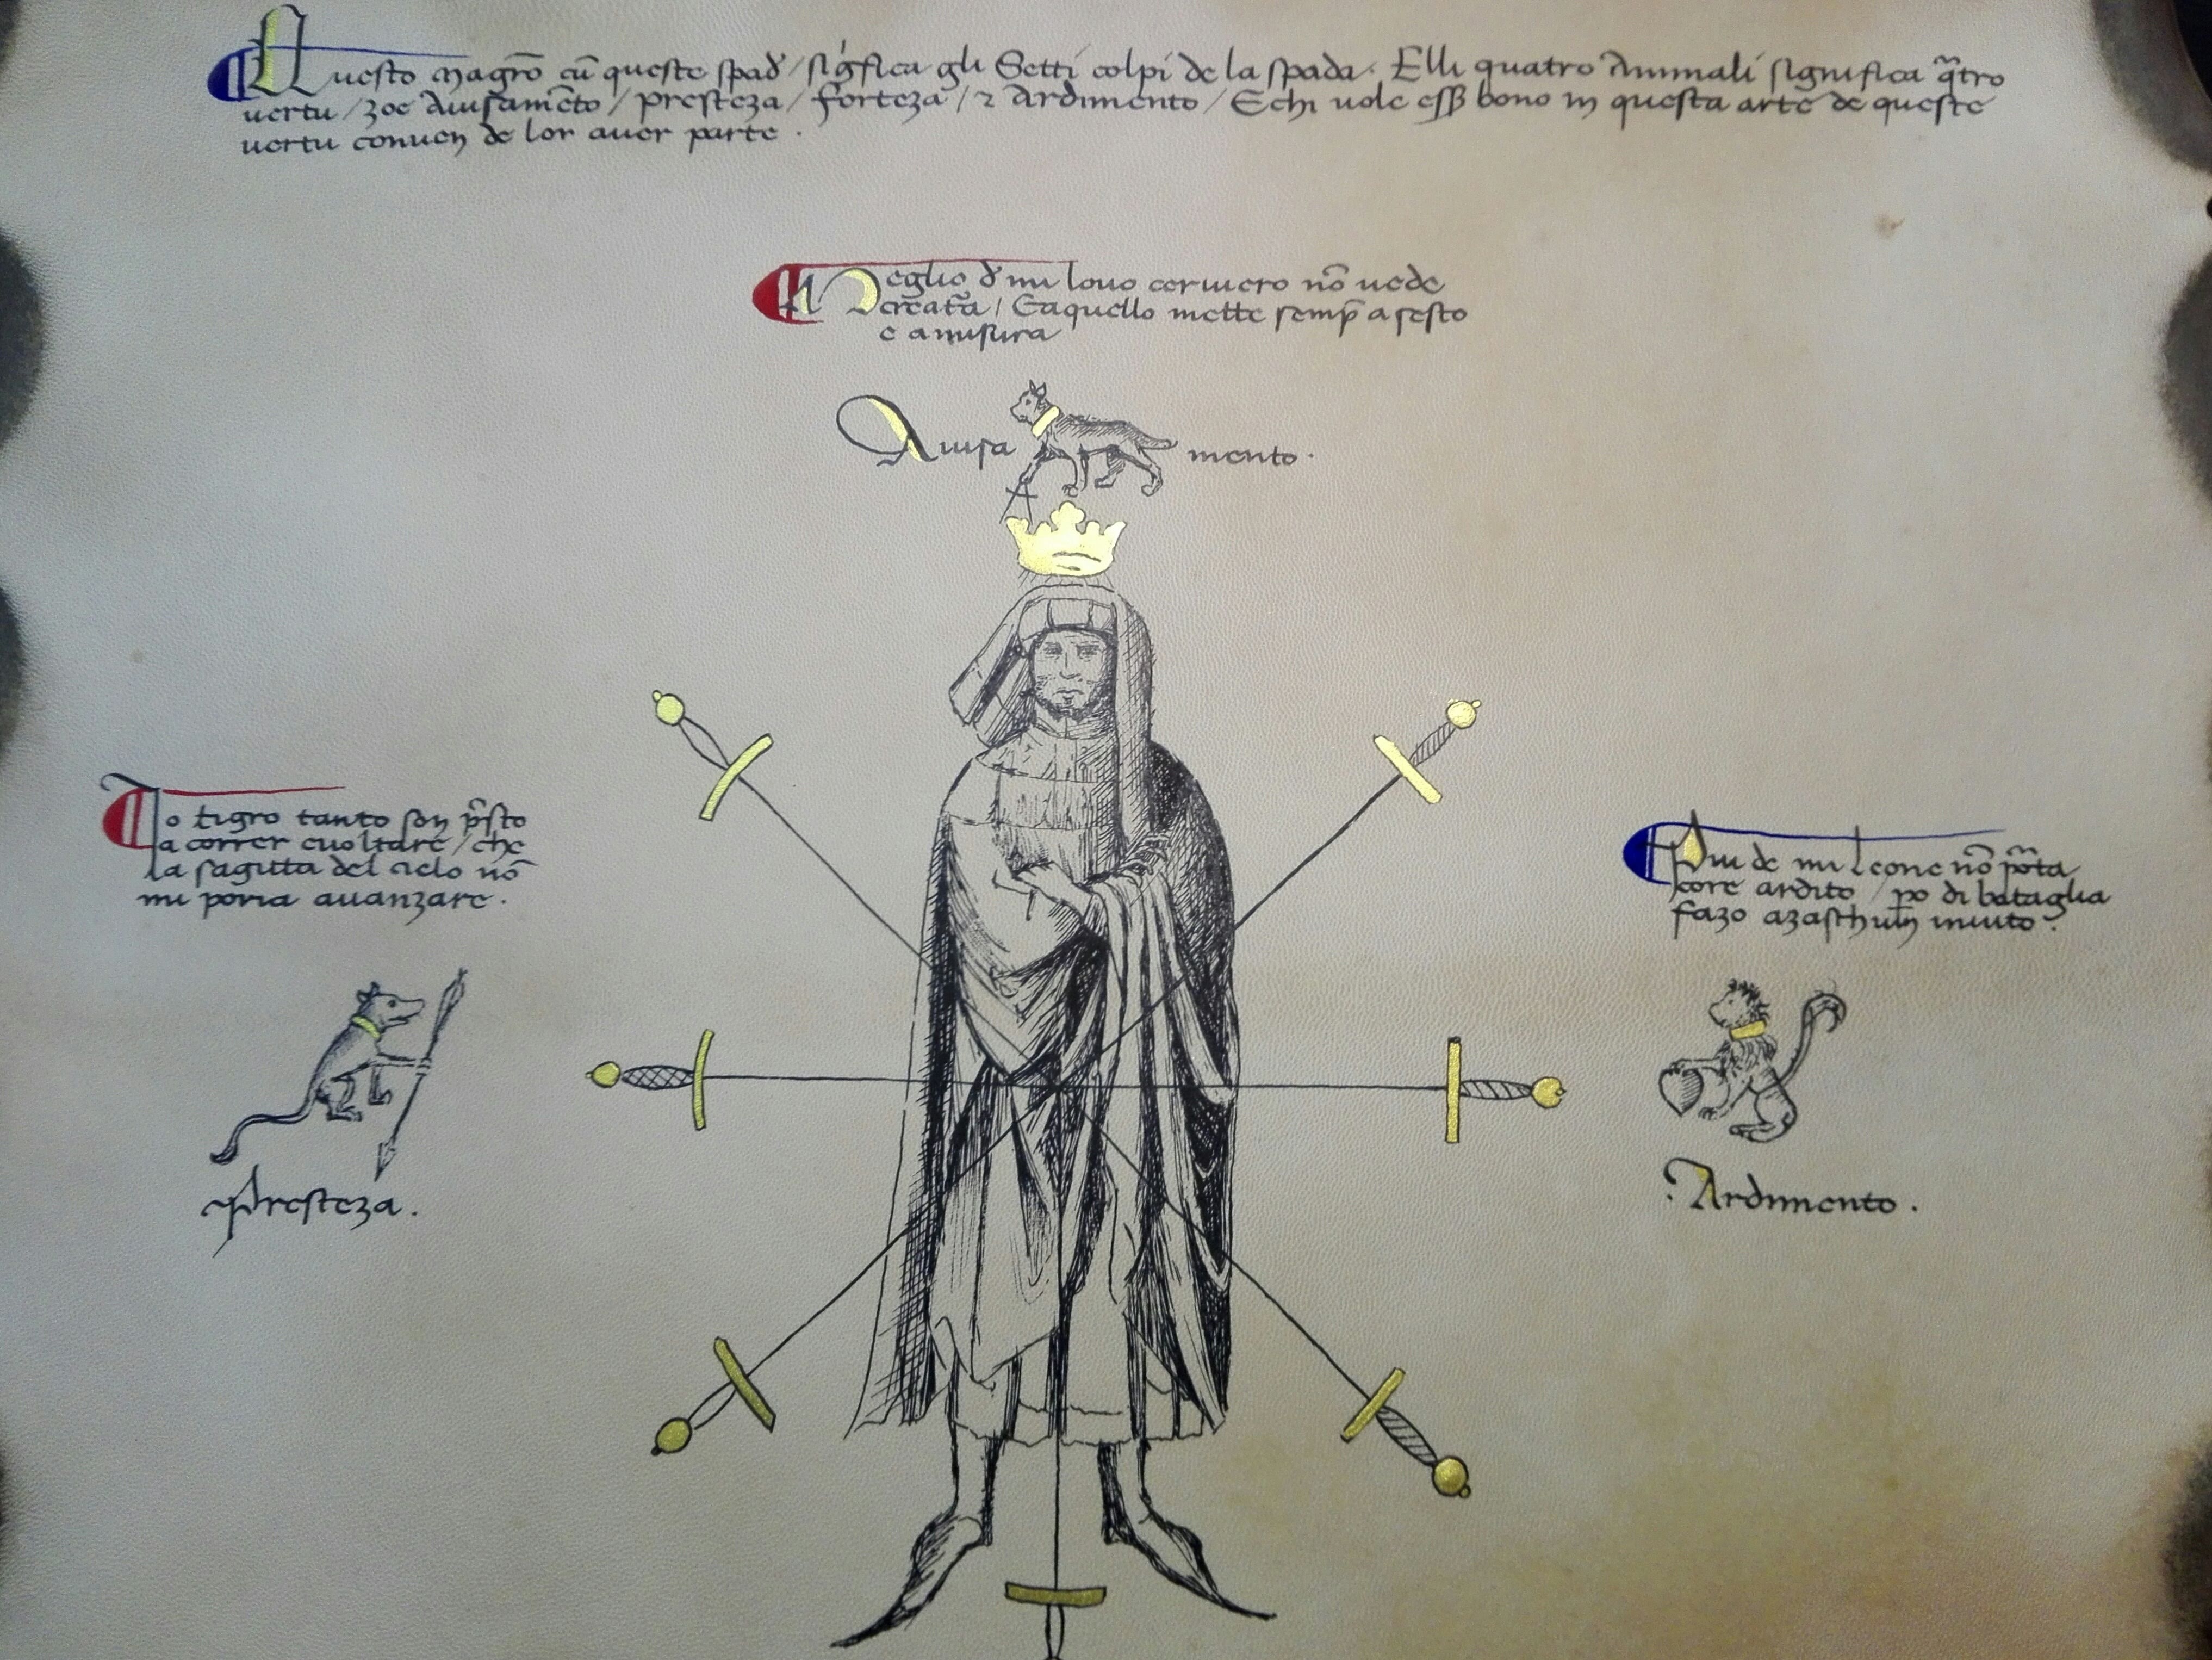 Questo magrō cū queste spad' / sigfica gli Setti colpi de la spada. Elli quatro Animali significa q̄tro
uertu / zoe Auisamēto / presteza / forteza / ⁊ Ardimento / Echi uole esß bono in questa arte de queste
uertu conuen de lor auer parte.
Meglio d' mi louo ceruiero nō uede
creatā / Eaquello mette semp̄ a sesto
e a misura
Auisa mento.
Io tigro tanto son p̄sto
a correr euoltare / che
la sagitta del cielo nō
mi poria auanzare.
Piu de mi leone nō porta
core ardito / po di bataglia
fazo azaschun inuito.
Presteza.
Ardimento.